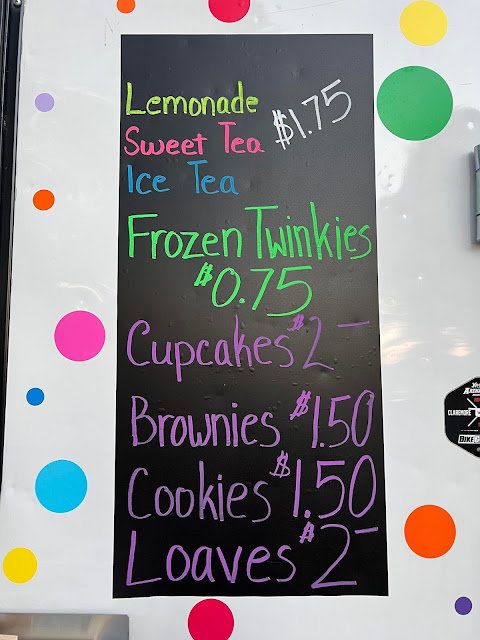 Lemonade
Sweet Tea $1.75
Ice Tea
Frozen Twinkies
$0.75
Cupcakes $2-
Brownies $1.50
Cookies $1.50
Loaves $2-
CLAREMORE